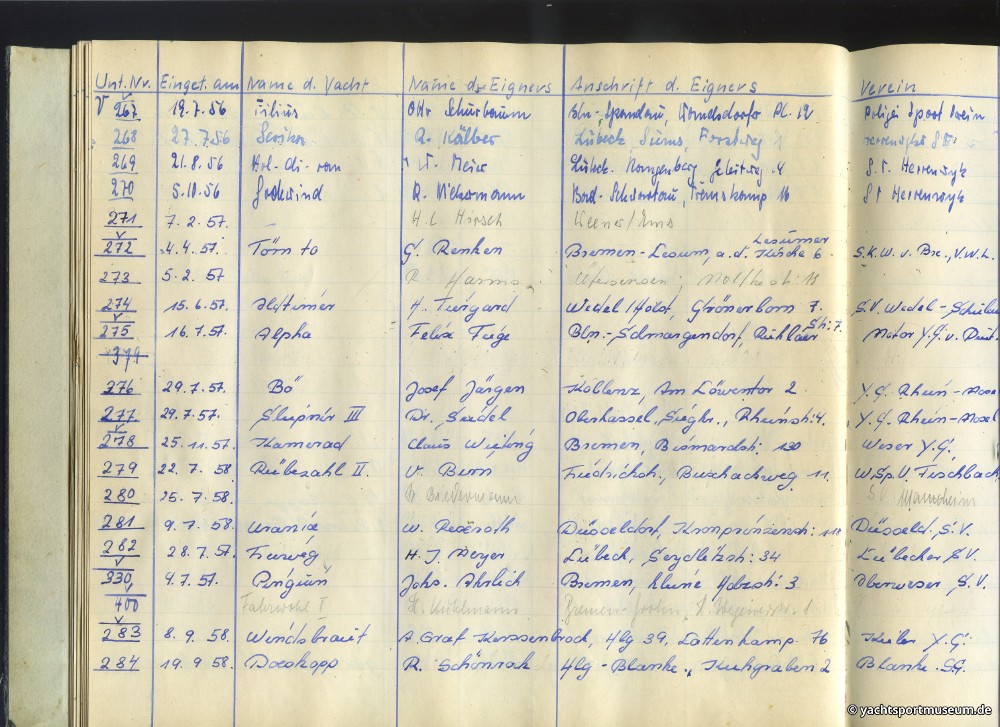 Unt. Nr. Einget. am Name d. Yacht Name d. Eigners Anschrift d. Eigners Verein
V 267 19.7.56 Filius Otto Schurbaum Bln.-Spandau, Pl. 12 Polizei Sport Verein
268 27.7.56 R. Kälber Lübeck, Siems, 1
269 21.8.56 W. Meier Lübeck 4 S.V. Herrenwyk
270 5.10.56 R. Bad-Schwartau, 16 SV Herrenwyk
271 7.2.57. – H.C. Hirsch Leener/Ems
Lesumer
272 4.4.57. Törn to G. Renken Bremen-Lesum, a.d. Kirche 6 S.K.W. v. Bre., V.W.L.
273 5.2.57 R. Harms Uetersen; 18
274 15.6.57. Oldtimer H. Wedel/Holst, Grönerborn 7. S.V. Wedel-Schulau
Str. 7.
275 16.7.57. Alpha Felix Bln.-Schmargendorf, Ruhlaer Motor Y.G. v. Deut.
379
276 29.7.57. Bö Josef Jörgen Koblenz, Am Löwentor 2 Y.G. Rhein-Mosel
277 29.7.57. Sleipnir III Dr. Seidel Oberkassel, Siegkr., Rheinstr. 4. Y.G. Rhein-Mosel
278 25.11.57. Kamerad Claus Bremen, Bismarckstr. 130 Weser Y.G.
279 22.7.58 Rübezahl II. V. Burn Friedrichsh., 11. W.Sp.V. Fischbach
280 25.7.58. Biedermann S.V. Mannheim
281 9.7.58. Urania W. Düsseldorf, Kronprinzenstr. Düsseld. S.V.
282 28.7.57. H.J. Meyer Lübeck, Seydlitzstr. 34 Lübecker S.V.
330, 4.7.57. Pinguin Johs. Ahrlich Bremen, Kleine Holzstr. 3 Oberweser S.V.
400 Fahrwohl I H. Kuhlmann Bremen-Grohn, 1
283 8.9.58. Windsbraut A. Graf Kerssenbrock, Hbg 39, Lattenkamp 76 Kieler Y.G.
284 19.9.58. R. Schönrok Hbg-Blanke., Kuhgraben 2 Blanke. SG.
© yachtsportmuseum.de